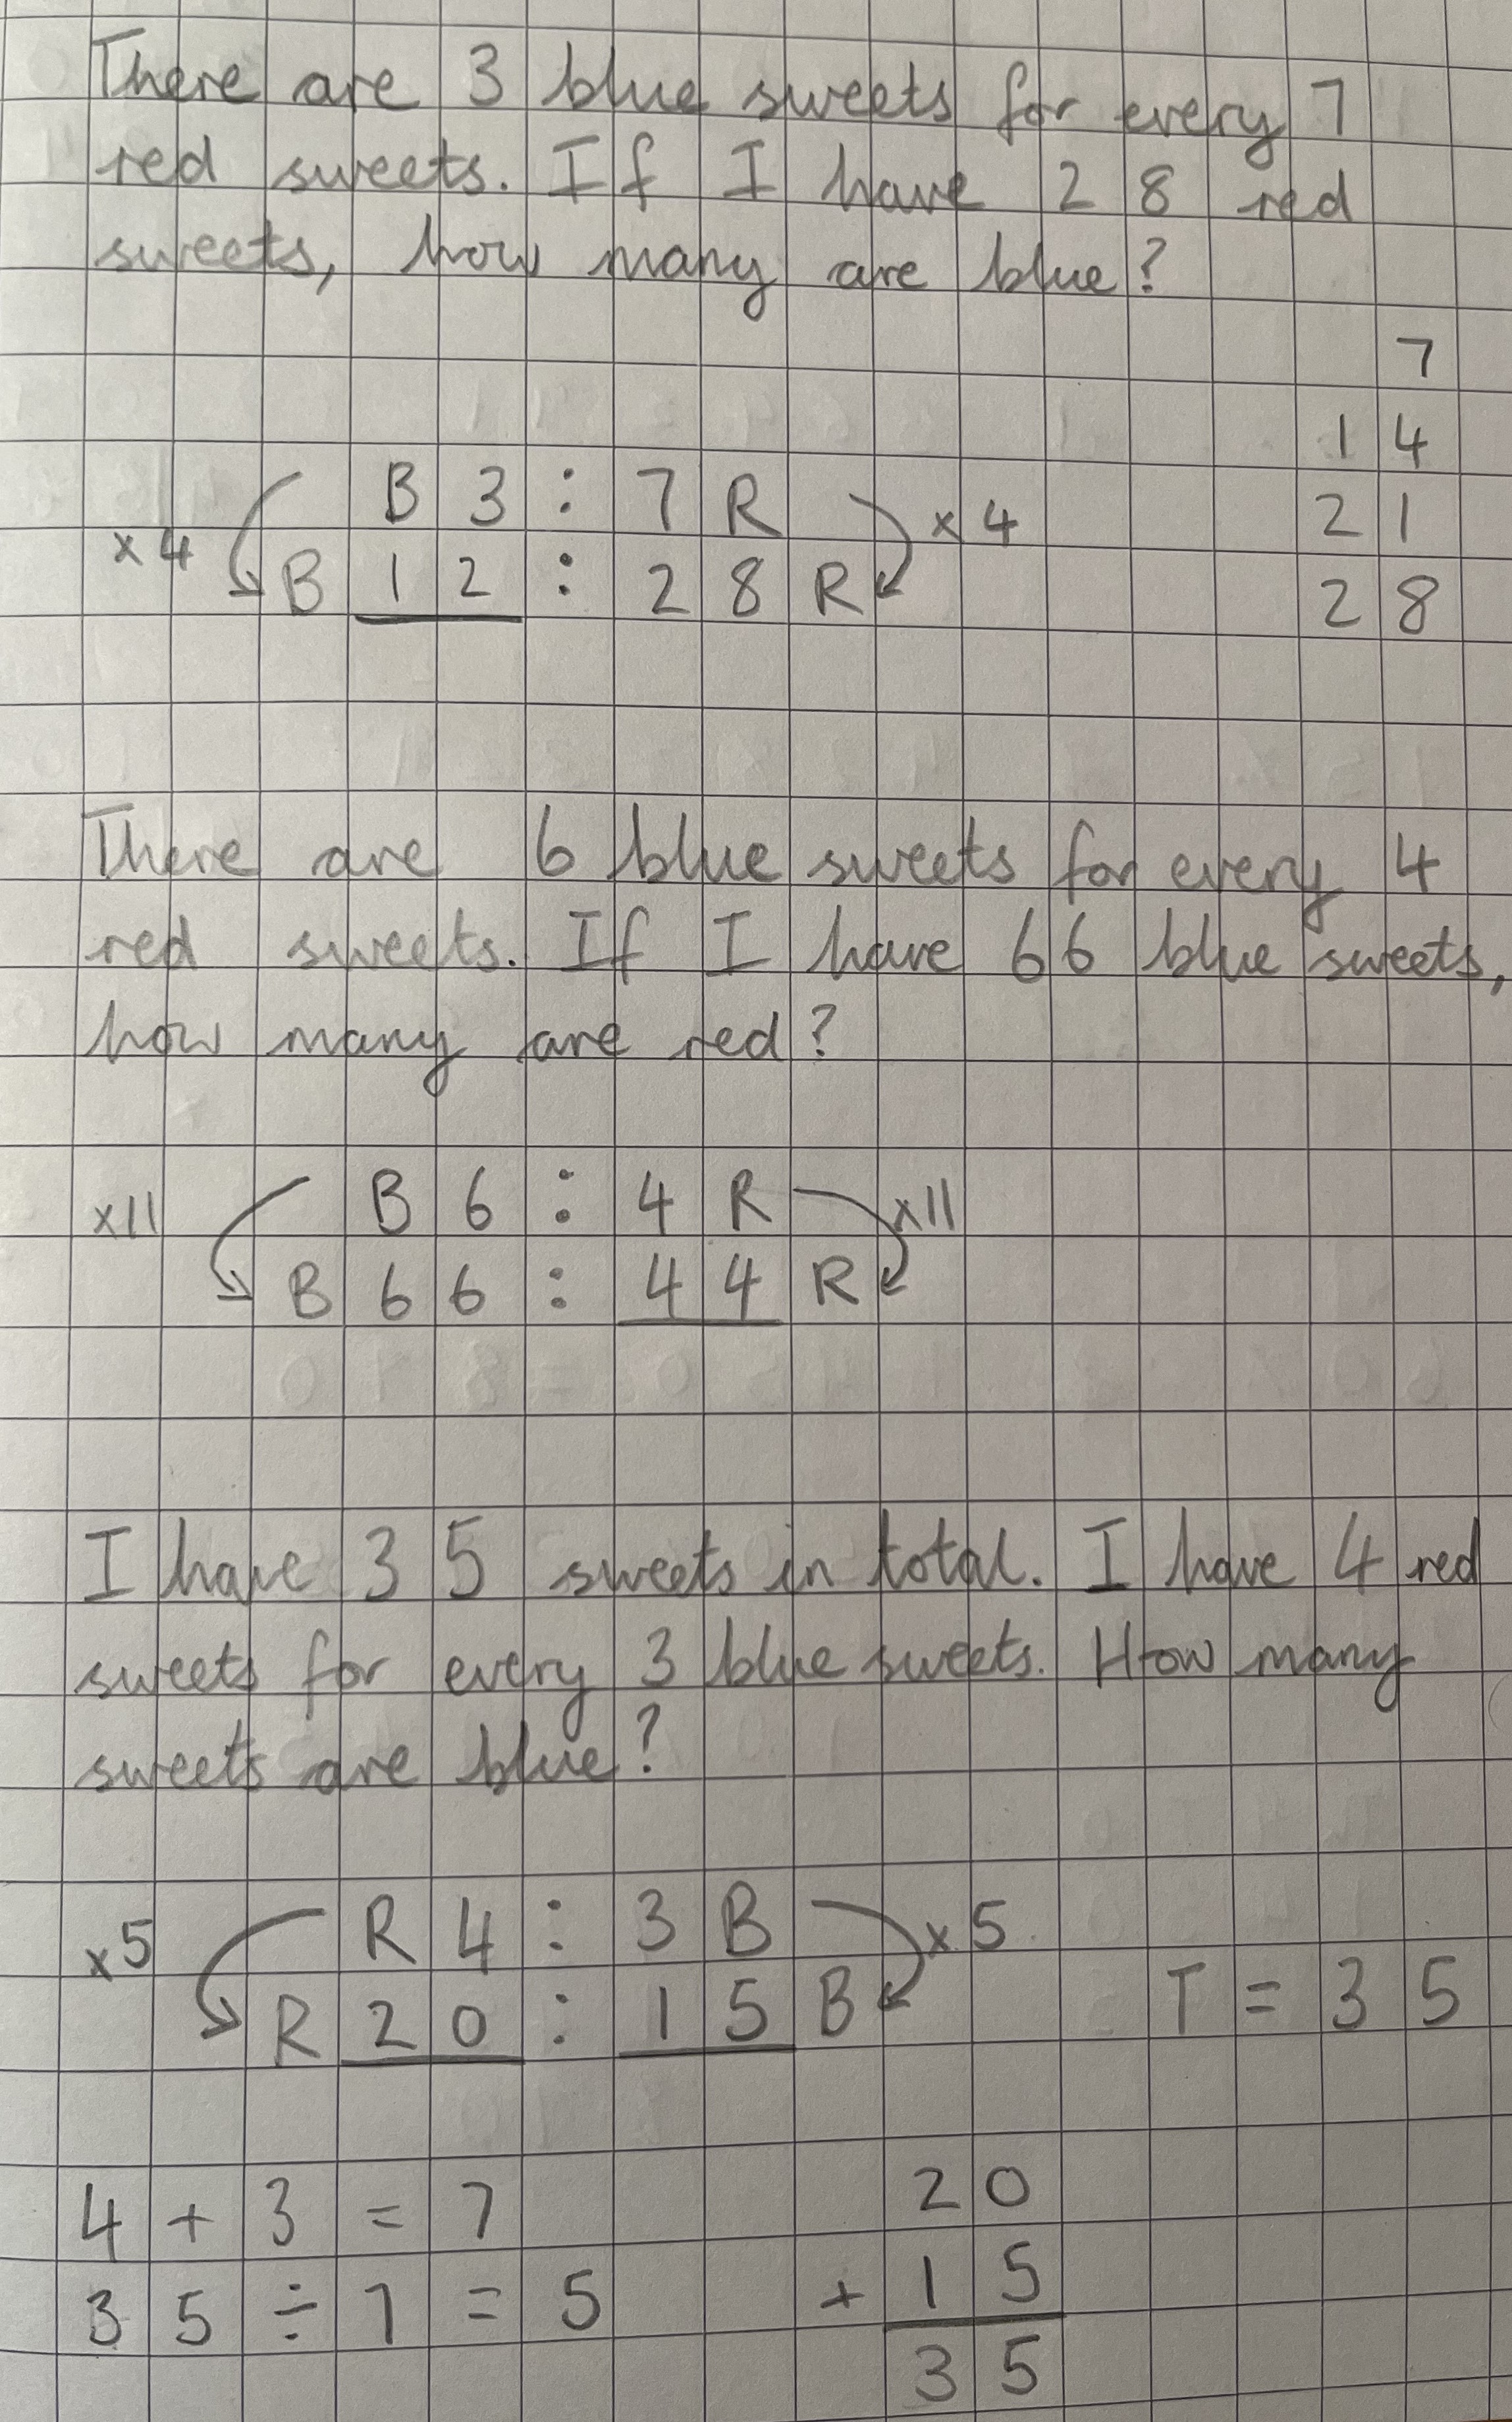 There are 3 blue sweets for every 7
red sweets. If I have 28 red
sweets, how many are blue?
7
14
B 3 : 7 R
21
x4
x4
B 12 : 28 R
28
There are 6 blue sweets for every 4
red sweets. If I have 66 blue sweets,
how many are red?
x11
B 6 : 4 R
x11
B 66 : 44 R
I have 35 sweets in total. I have 4 red
sweets for every 3 blue sweets. How many
sweets are blue?
x5
R 4 : 3 B
x5
R 20 : 15 B
T = 35
4 + 3 = 7
35 ÷ 7 = 5
20
+ 15
35